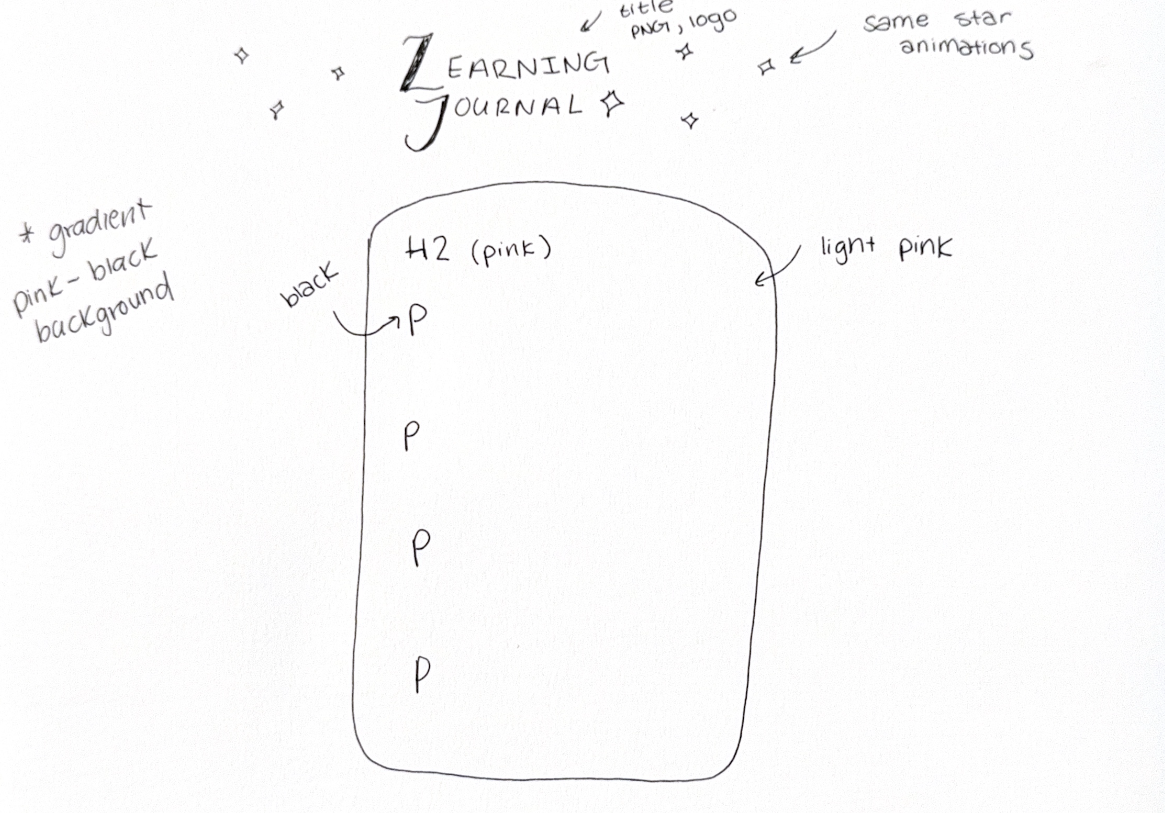 title
PNG, logo
same star
animations
LEARNING
JOURNAL
* gradient
pink - black
background
H2 (pink)
light pink
black
P
P
P
P